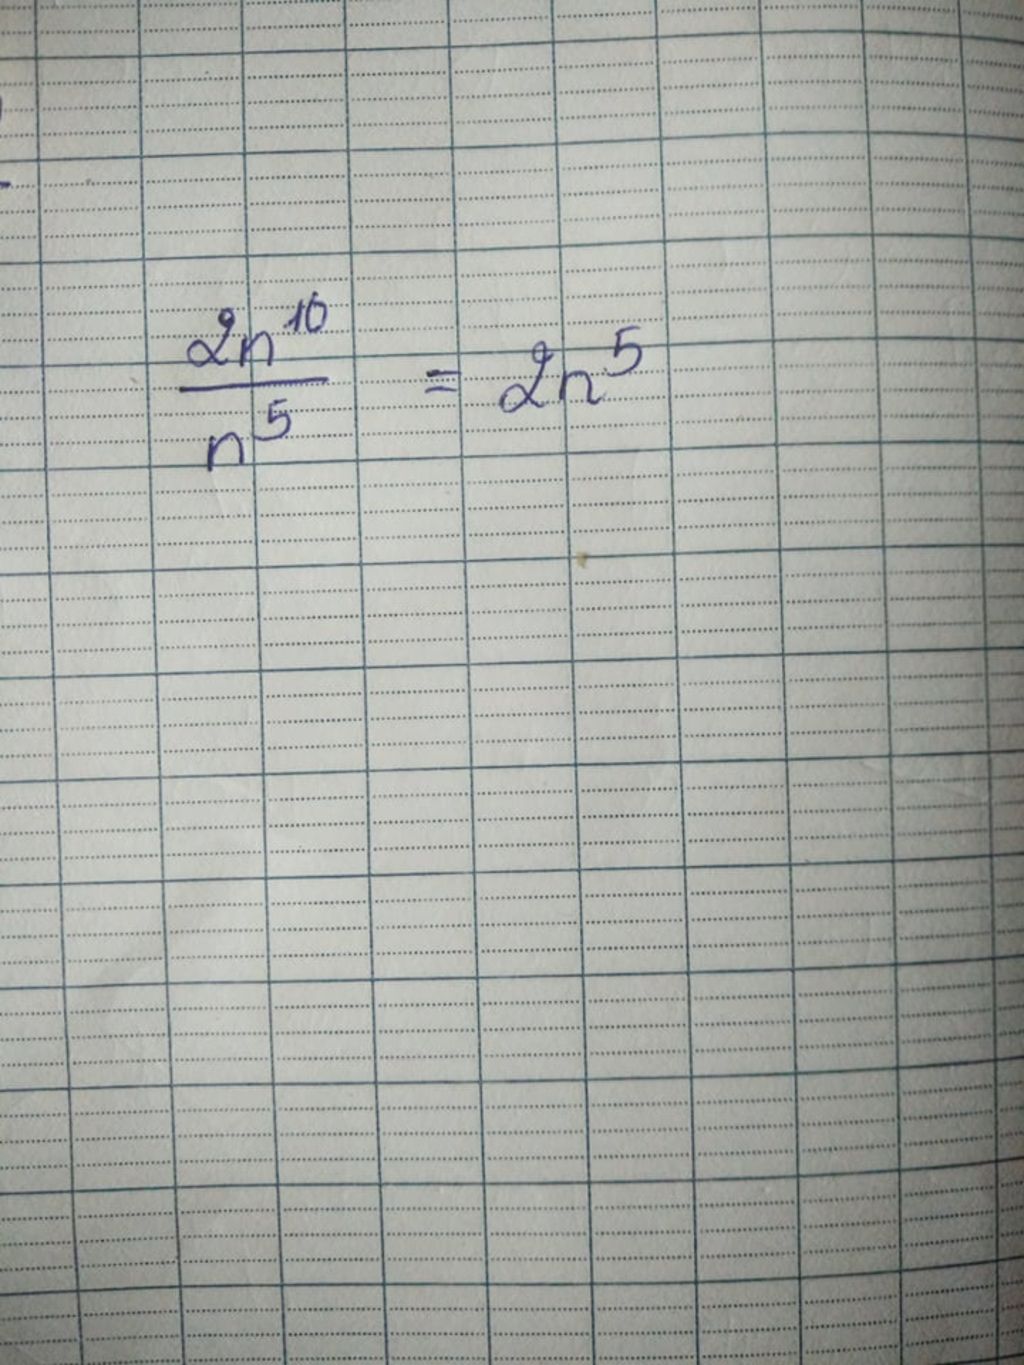 2n^10 / n^5 = 2n^5